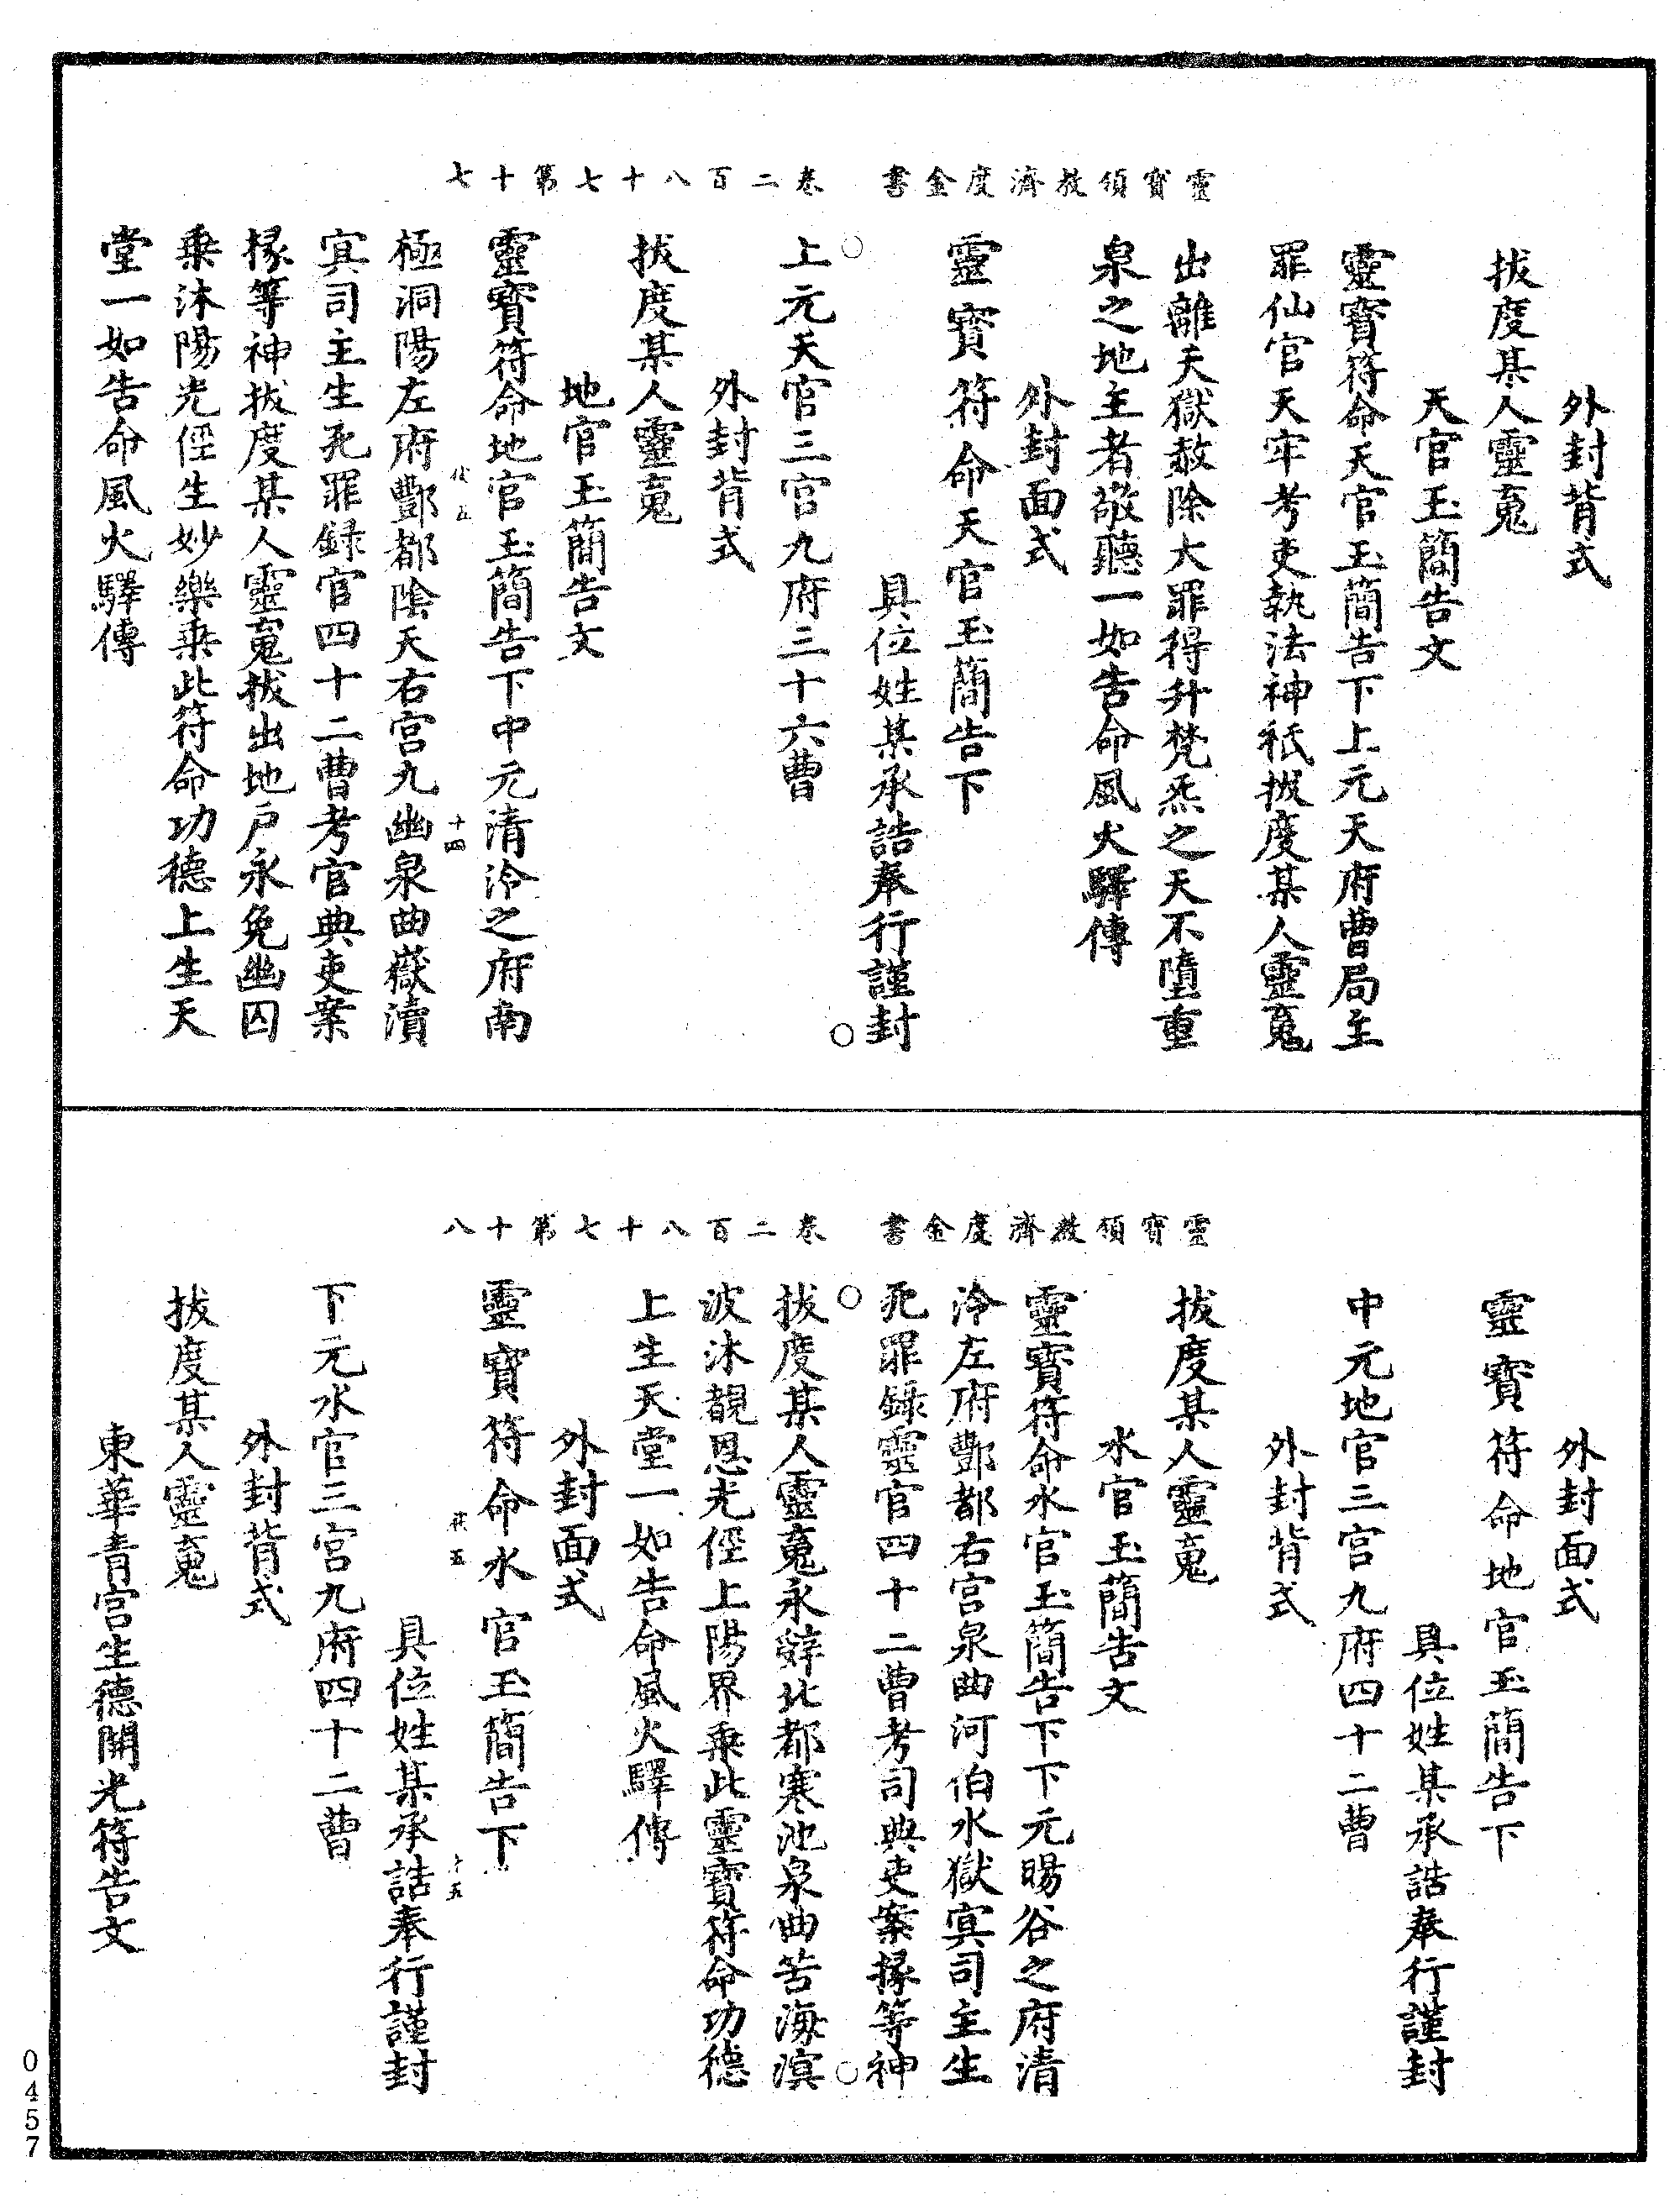 靈寶領教濟度金書　卷二百八十七第十七
外封背式
拔度某人靈䰟
天官玉簡告文
靈寶符命天官玉簡告下上元天府曹局主
罪仙官天牢考吏執法神祇拔度某人靈䰟
出離天獄赦除大罪得升梵炁之天不墮重
泉之地主者敬聽一如告命風火驛傳
外封面式
靈寶符命天官玉簡告下
具位姓某承誥奉行謹封
上元天官三官九府三十六曹
外封背式
拔度某人靈䰟
地官玉簡告文
靈寶符命地官玉簡告下中元清泠之府南
十四
極洞陽左府酆都陰天右宮九幽泉曲嶽瀆
㝠司主生死罪録官四十二曹考官典吏案
掾等神拔度某人靈䰟拔出地戶永免幽囚
乘沐陽光徑生妙樂乘此符命功德上生天
堂一如告命風火驛傳
靈寶領教濟度金書　卷二百八十七第十八
外封面式
靈寶符命地官玉簡告下
具位姓某承誥奉行謹封
中元地官三宮九府四十二曹
外封背式
拔度某人靈䰟
水官玉簡告文
靈寶符命水官玉簡告下下元暘谷之府清
泠左府酆都右宮泉曲河伯水獄㝠司主生
死罪録靈官四十二曹考司典吏案掾等神
拔度某人靈䰟永辭北都寒池泉曲苦海溟
波沐覩恩光徑上陽界乘此靈寶符命功德
上生天堂一如告命風火驛傳
外封面式
靈寶符命水官玉簡告下
十五
具位姓某承誥奉行謹封
下元水官三宮九府四十二曹
外封背式
拔度某人靈䰟
東華青宮生德開光符告文
0457